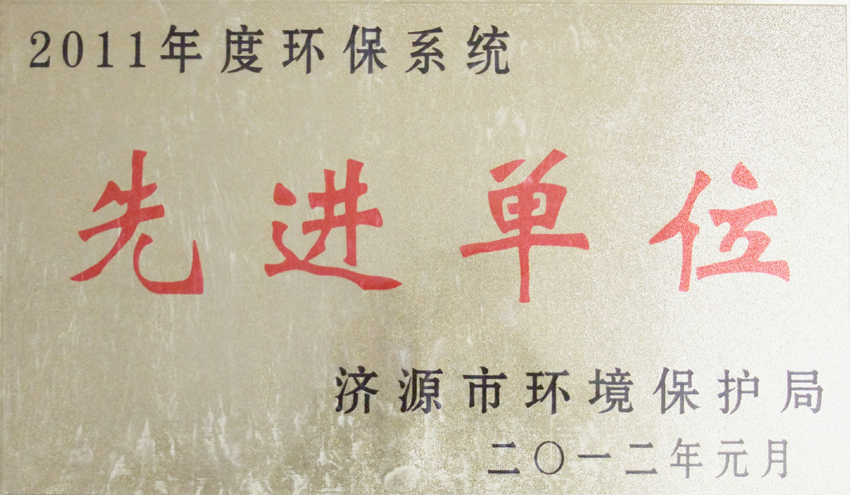 2011年度环保系统
先进单位
济源市环境保护局
二〇一二年元月